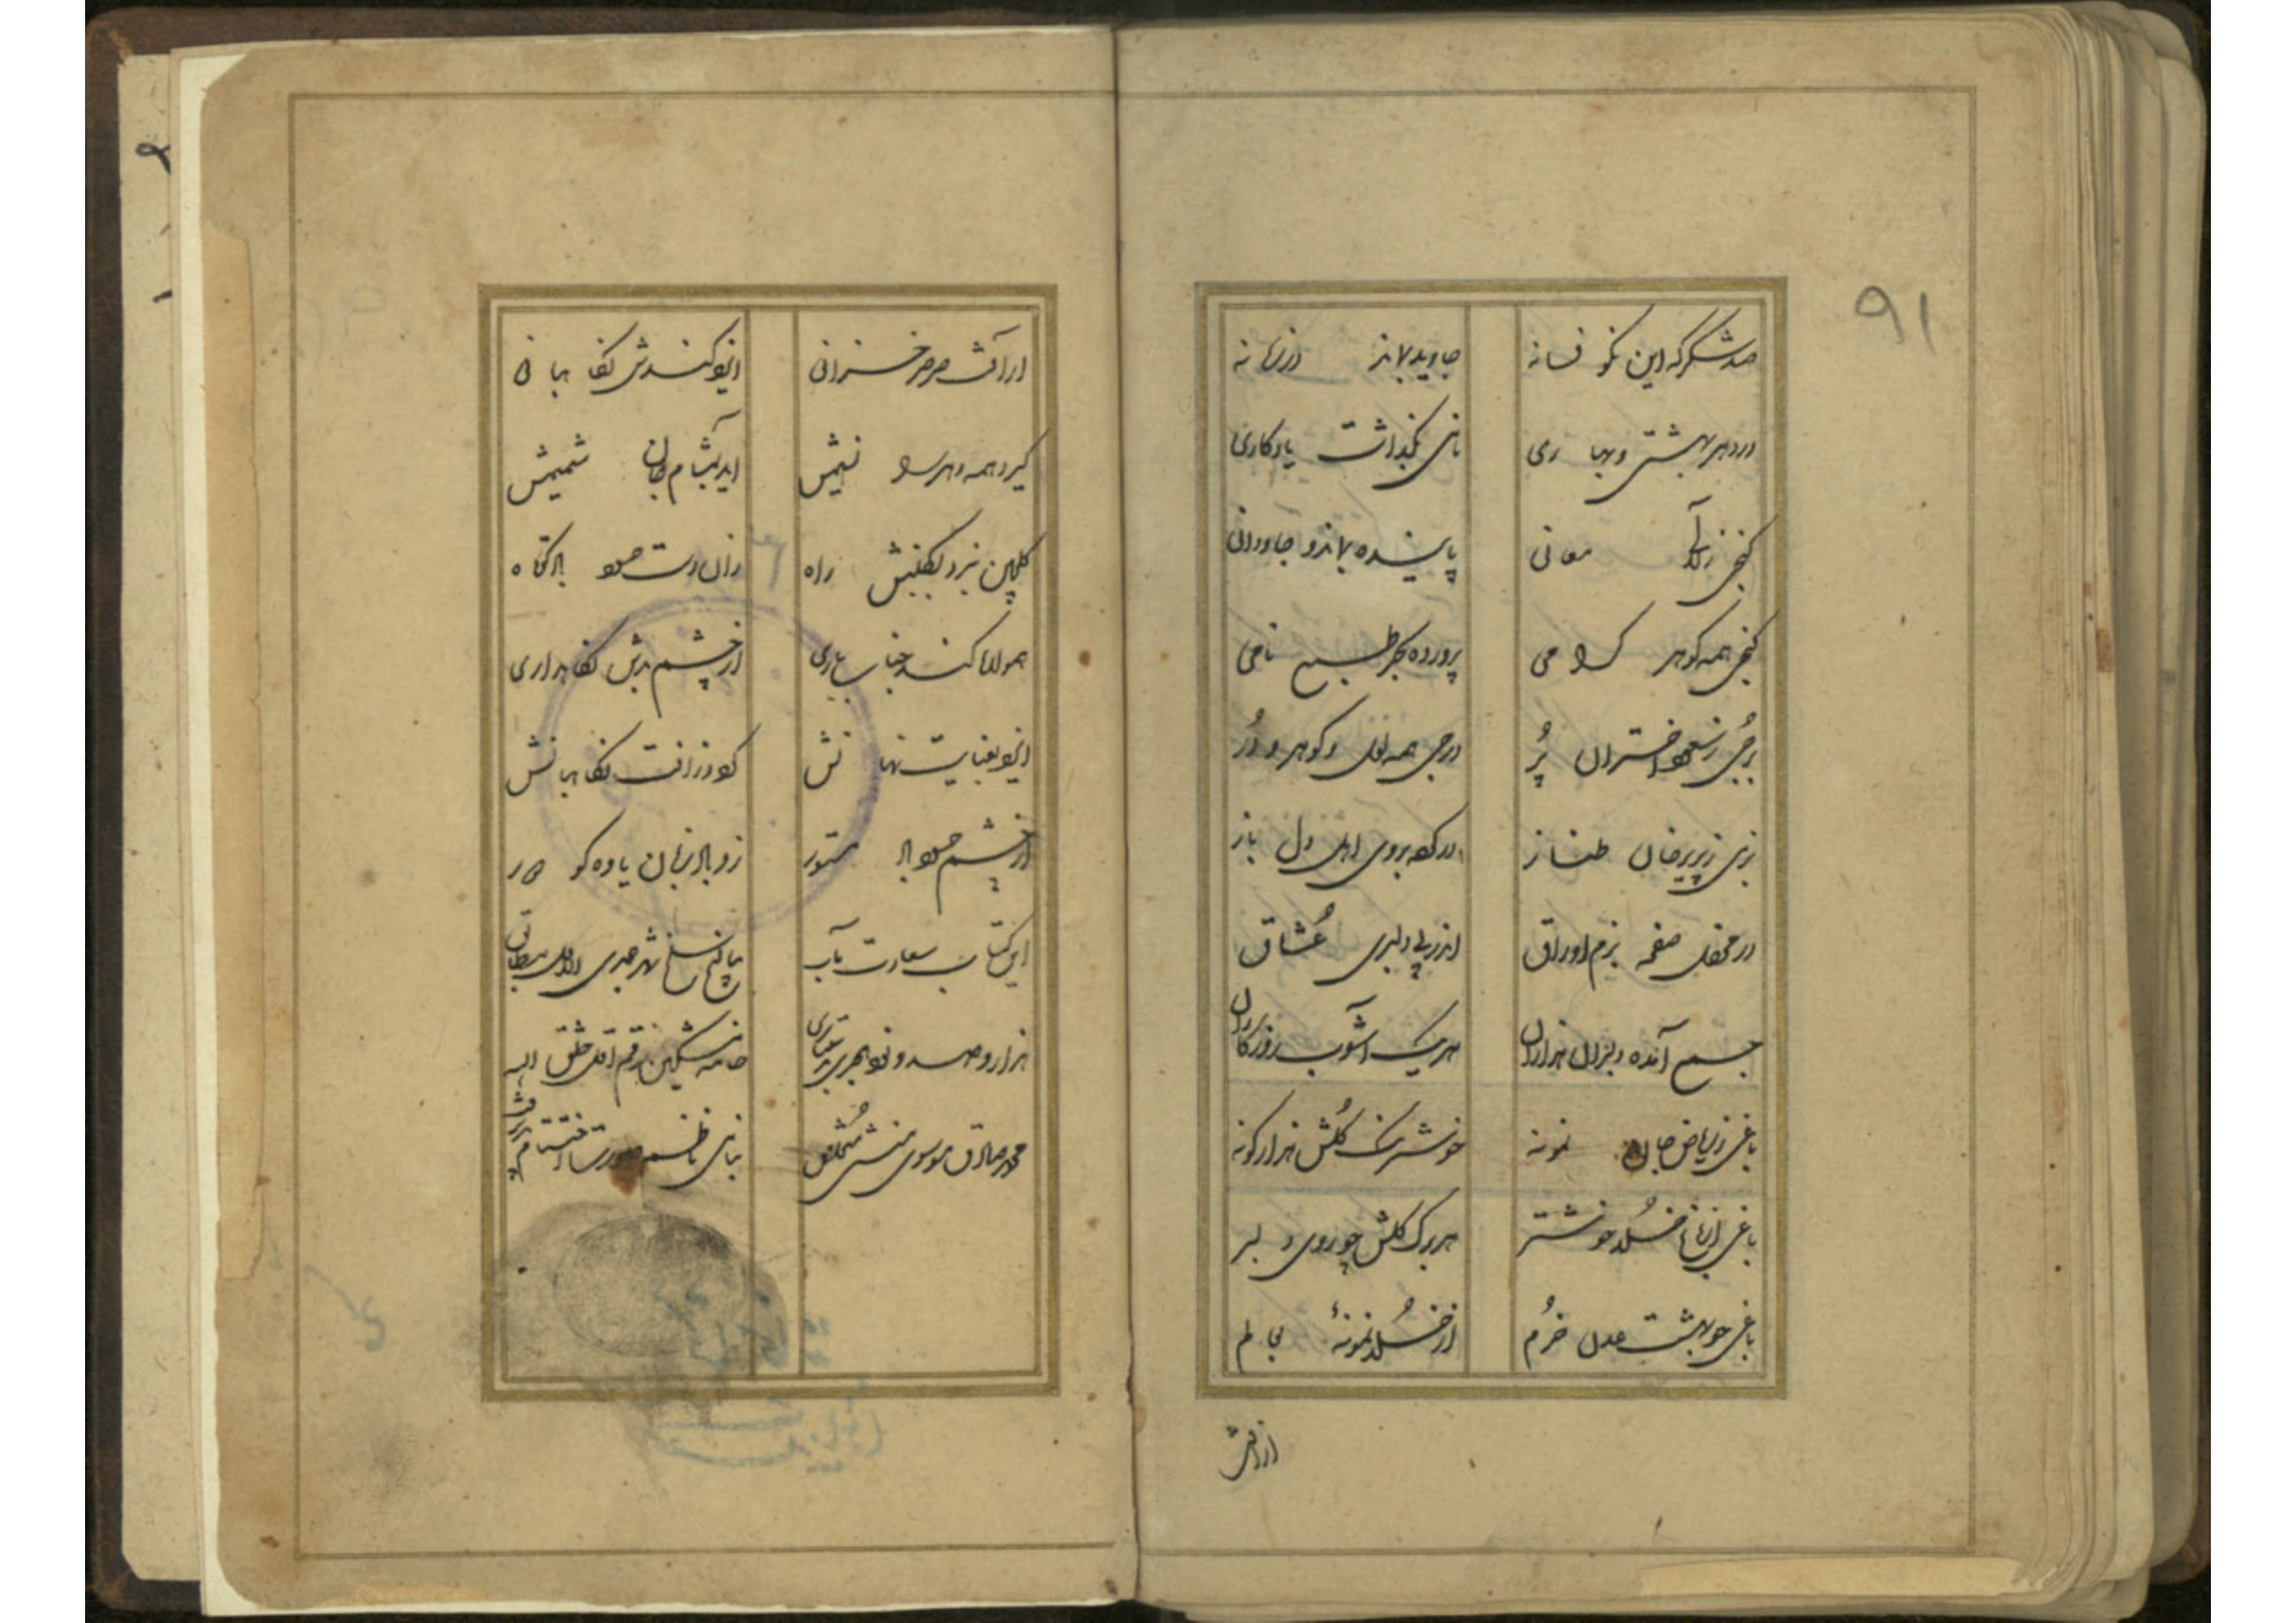 ۹۱
صد شکر که این نکو فسانه جاوید بماند در زمانه
در دهر بهشتی و بهاری نامی بگذاشت یادگاری
گنجی ز لآلی معانی پاینده بماند و جاودانی
گنجی همه گوهر گرامی پرورده بحر طبع نامی
برجی ز سعود اختران پر درجی همه لعل و گوهر و در
بزمی ز پریرخان طناز درگه بروی اهل دل باز
در محفل صفحه بزم اوراق اندر پی دلبری عشاق
جمع آمده دلبران هزاران هر یک آشوب روزگاران
باغی ز ریاض جان نمونه خوشرنگ گلش هزار گونه
باغی ز باغ خلد خوشتر هر برگ گلش چو روی دلبر
باغی چو بهشت عدن خرم از خلد نمونهٔ بعالم
از آفت
از آفت صرصر خزانی ایزد کندش نگاهبانی
گیرد همه دهر را نسیمش آید بمشام جان شمیمش
گلچین نبرد بگلبنش راه زان دست حسود باد کوتاه
همواره کند جناب باری از چشم بدش نگاهداری
ایزد بعنایت نهانش کو در زآفت نگاهبانش
از چشم حسود باد مستور زو باد زبان یاوه گو دور
این کتاب سعادت مآب بتاریخ سلخ شهر جمدی الاول مطابق
هزار و صد و نود هجری بدستیاری خامه مشکین رقم اقل خلق الله
محمد صادق موسوی منشی متخلص بنامی ناظم صورت اختتام پذیرفت